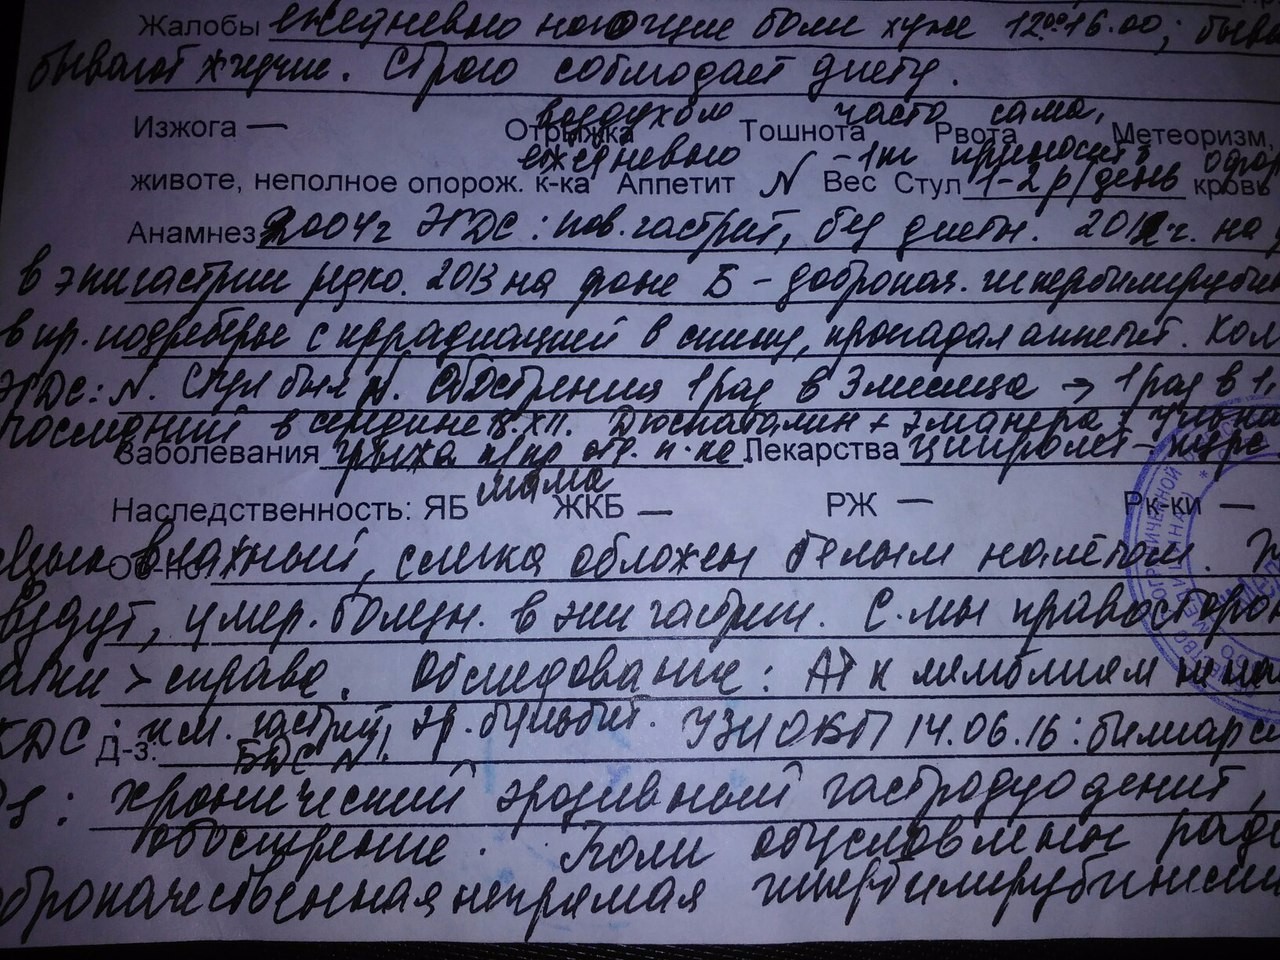 Жалобы ежедневно ноющие боли хуже 12⁰⁰16.00;
бывают жгучие. Строго соблюдает диету.
воздухом часто сама,
Изжога — Отрыжка Тошнота Рвота Метеоризм,
ежедневно -1т приносит
животе, неполное опорож. к-ка Аппетит N Вес Стул 1-2 р/день кровь
Анамнез 2004г ЭГДС: пов. гастрит, без диеты. 2012г. на
в эпигастрии редко. 2013 на фоне Б - доброкач. гипербилируби
в пр. подреберье с иррадиацией в спину, пропадал аппетит.
ЭГДС: N. Стул был N. Обострения 1 раз в 3 месяца → 1 раз в 1,
Последний в середине XII. Дюспаталин + эманера +
Заболевания грыжа п/кр отд. п-ка Лекарства ципролет - курс
мама
Наследственность: ЯБ ЖКБ — РЖ — Рк-ки —
Об-но: влажный, слегка обложен белым налётом.
ведут, умер. болезн. в эпигастрии. С-мы правосторон
> справа. Обследование: АТ к лямблиям
ГДС: гастрит, эр. бульбит. УЗИ ОБП 14.06.16: билиарн
Д-з: БДС N
Ds: хронический эрозивный гастродуоденит,
обострение. Боли обусловлены
оброкачественная непрямая гипербилирубинеми